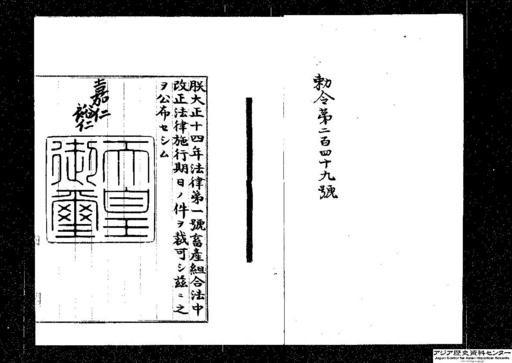 勅令第二百四十九號
朕大正十四年法律第一號畜產組合法中
改正法律施行期日ノ件ヲ裁可シ茲ニ之
ヲ公布セシム
嘉仁
裕仁
天皇
御璽
アジア歴史資料センター
Japan Center for Asian Historical Records